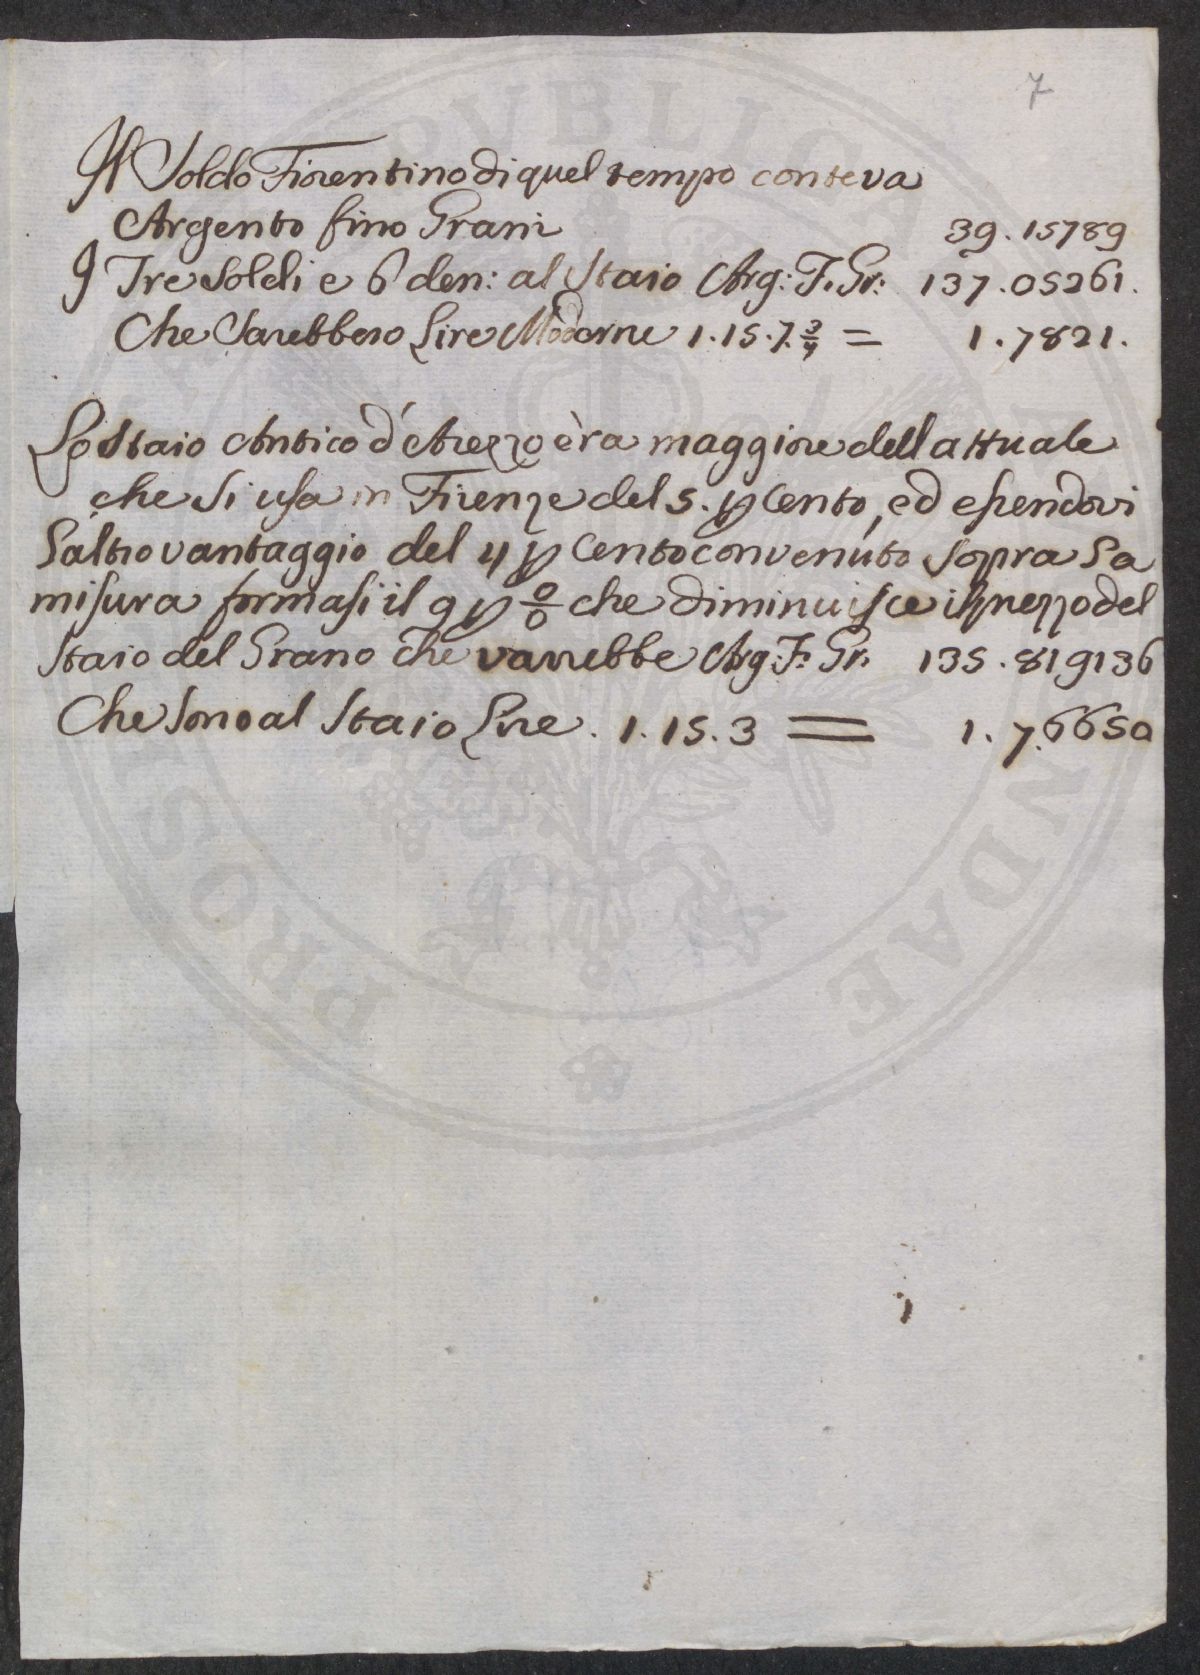 7
Il Soldo Fiorentino di quel tempo conteva
Argento fino Grani 39.15789
I Tre Soldi e 6 den: al Staio Arg: F. Gr: 137.05261.
Che Sarebbero Lire Moderne 1.15.7.3/4 = 1.7821.
Lo Staio Antico d'Arezzo èra maggiore dell attuale
che si usa in Firenze del 5. p Cento, ed essendovi
l'altro vantaggio del 4 p Cento convenuto sopra la
misura formasi il 9 p 0/0 che diminuisce il prezzo del
Staio del Grano che varrebbe Arg: F: Gr. 135.819136
Che Sono al Staio Lire. 1.15.3 = 1.76650
PVBLICA
PROS
NDAE